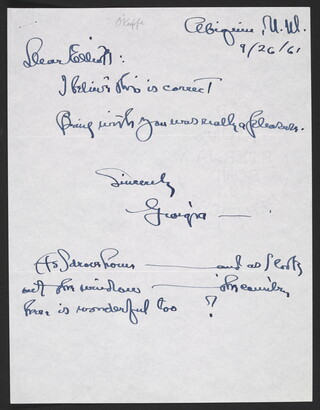 O'Keeffe
Abiquiu, N.M.
9/26/61
Dear Elliott:
I believe this is correct
Being with you was really a pleasure.
Sincerely
Georgia —
As I drove home — and as I look
out the window — the country
here is wonderful too